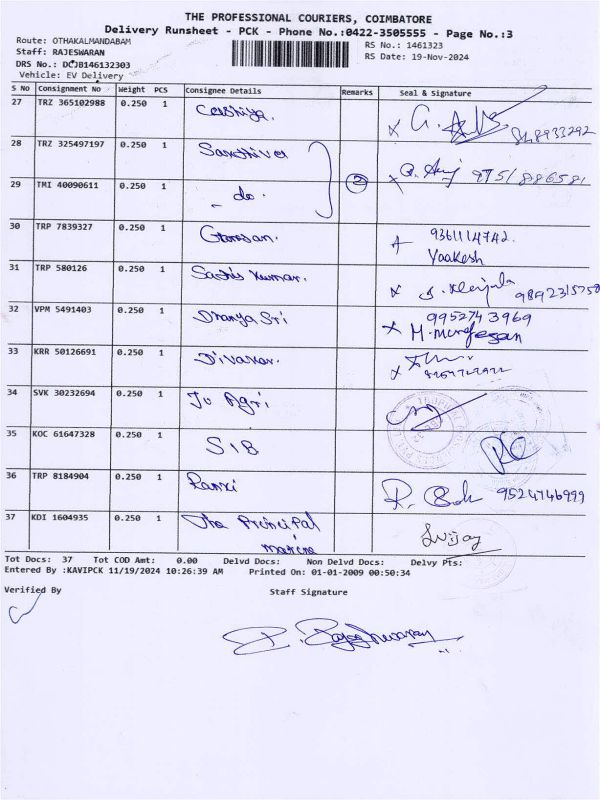 THE PROFESSIONAL COURIERS, COIMBATORE
Delivery Runsheet - PCK - Phone No.:0422-3505555 - Page No.:3
Route: OTHAKALMANDABAM
RS No.: 1461323
Staff: RAJESWARAN
RS Date: 19-Nov-2024
DRS No.: DCJB146132303
Vehicle: EV Delivery
S No Consignment No Weight PCS Consignee Details Remarks Seal & Signature
27 TRZ 365102988 0.250 1 x
28 TRZ 325497197 0.250 1 x 9751886581
29 TMI 40090611 0.250 1 - do. 2
30 TRP 7839327 0.250 1 9361114742.
Yaakesh
31 TRP 580126 0.250 1 Sathis Kumar. x
32 VPM 5491403 0.250 1 Dhanya Sri 9952743969
x M. Murugesan
33 KRR 50126691 0.250 1 Divakar. x
34 SVK 30232694 0.250 1 Agri
35 KOC 61647328 0.250 1 SIB
36 TRP 8184904 0.250 1 9524746999
37 KDI 1604935 0.250 1 The Principal
Tot Docs: 37 Tot COD Amt: 0.00 Delvd Docs: Non Delvd Docs: Delvy Pts:
Entered By :KAVIPCK 11/19/2024 10:26:39 AM Printed On: 01-01-2009 00:50:34
Verified By
Staff Signature